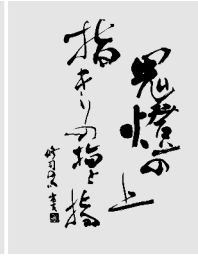 鬼燈の
上
指きりの指と指